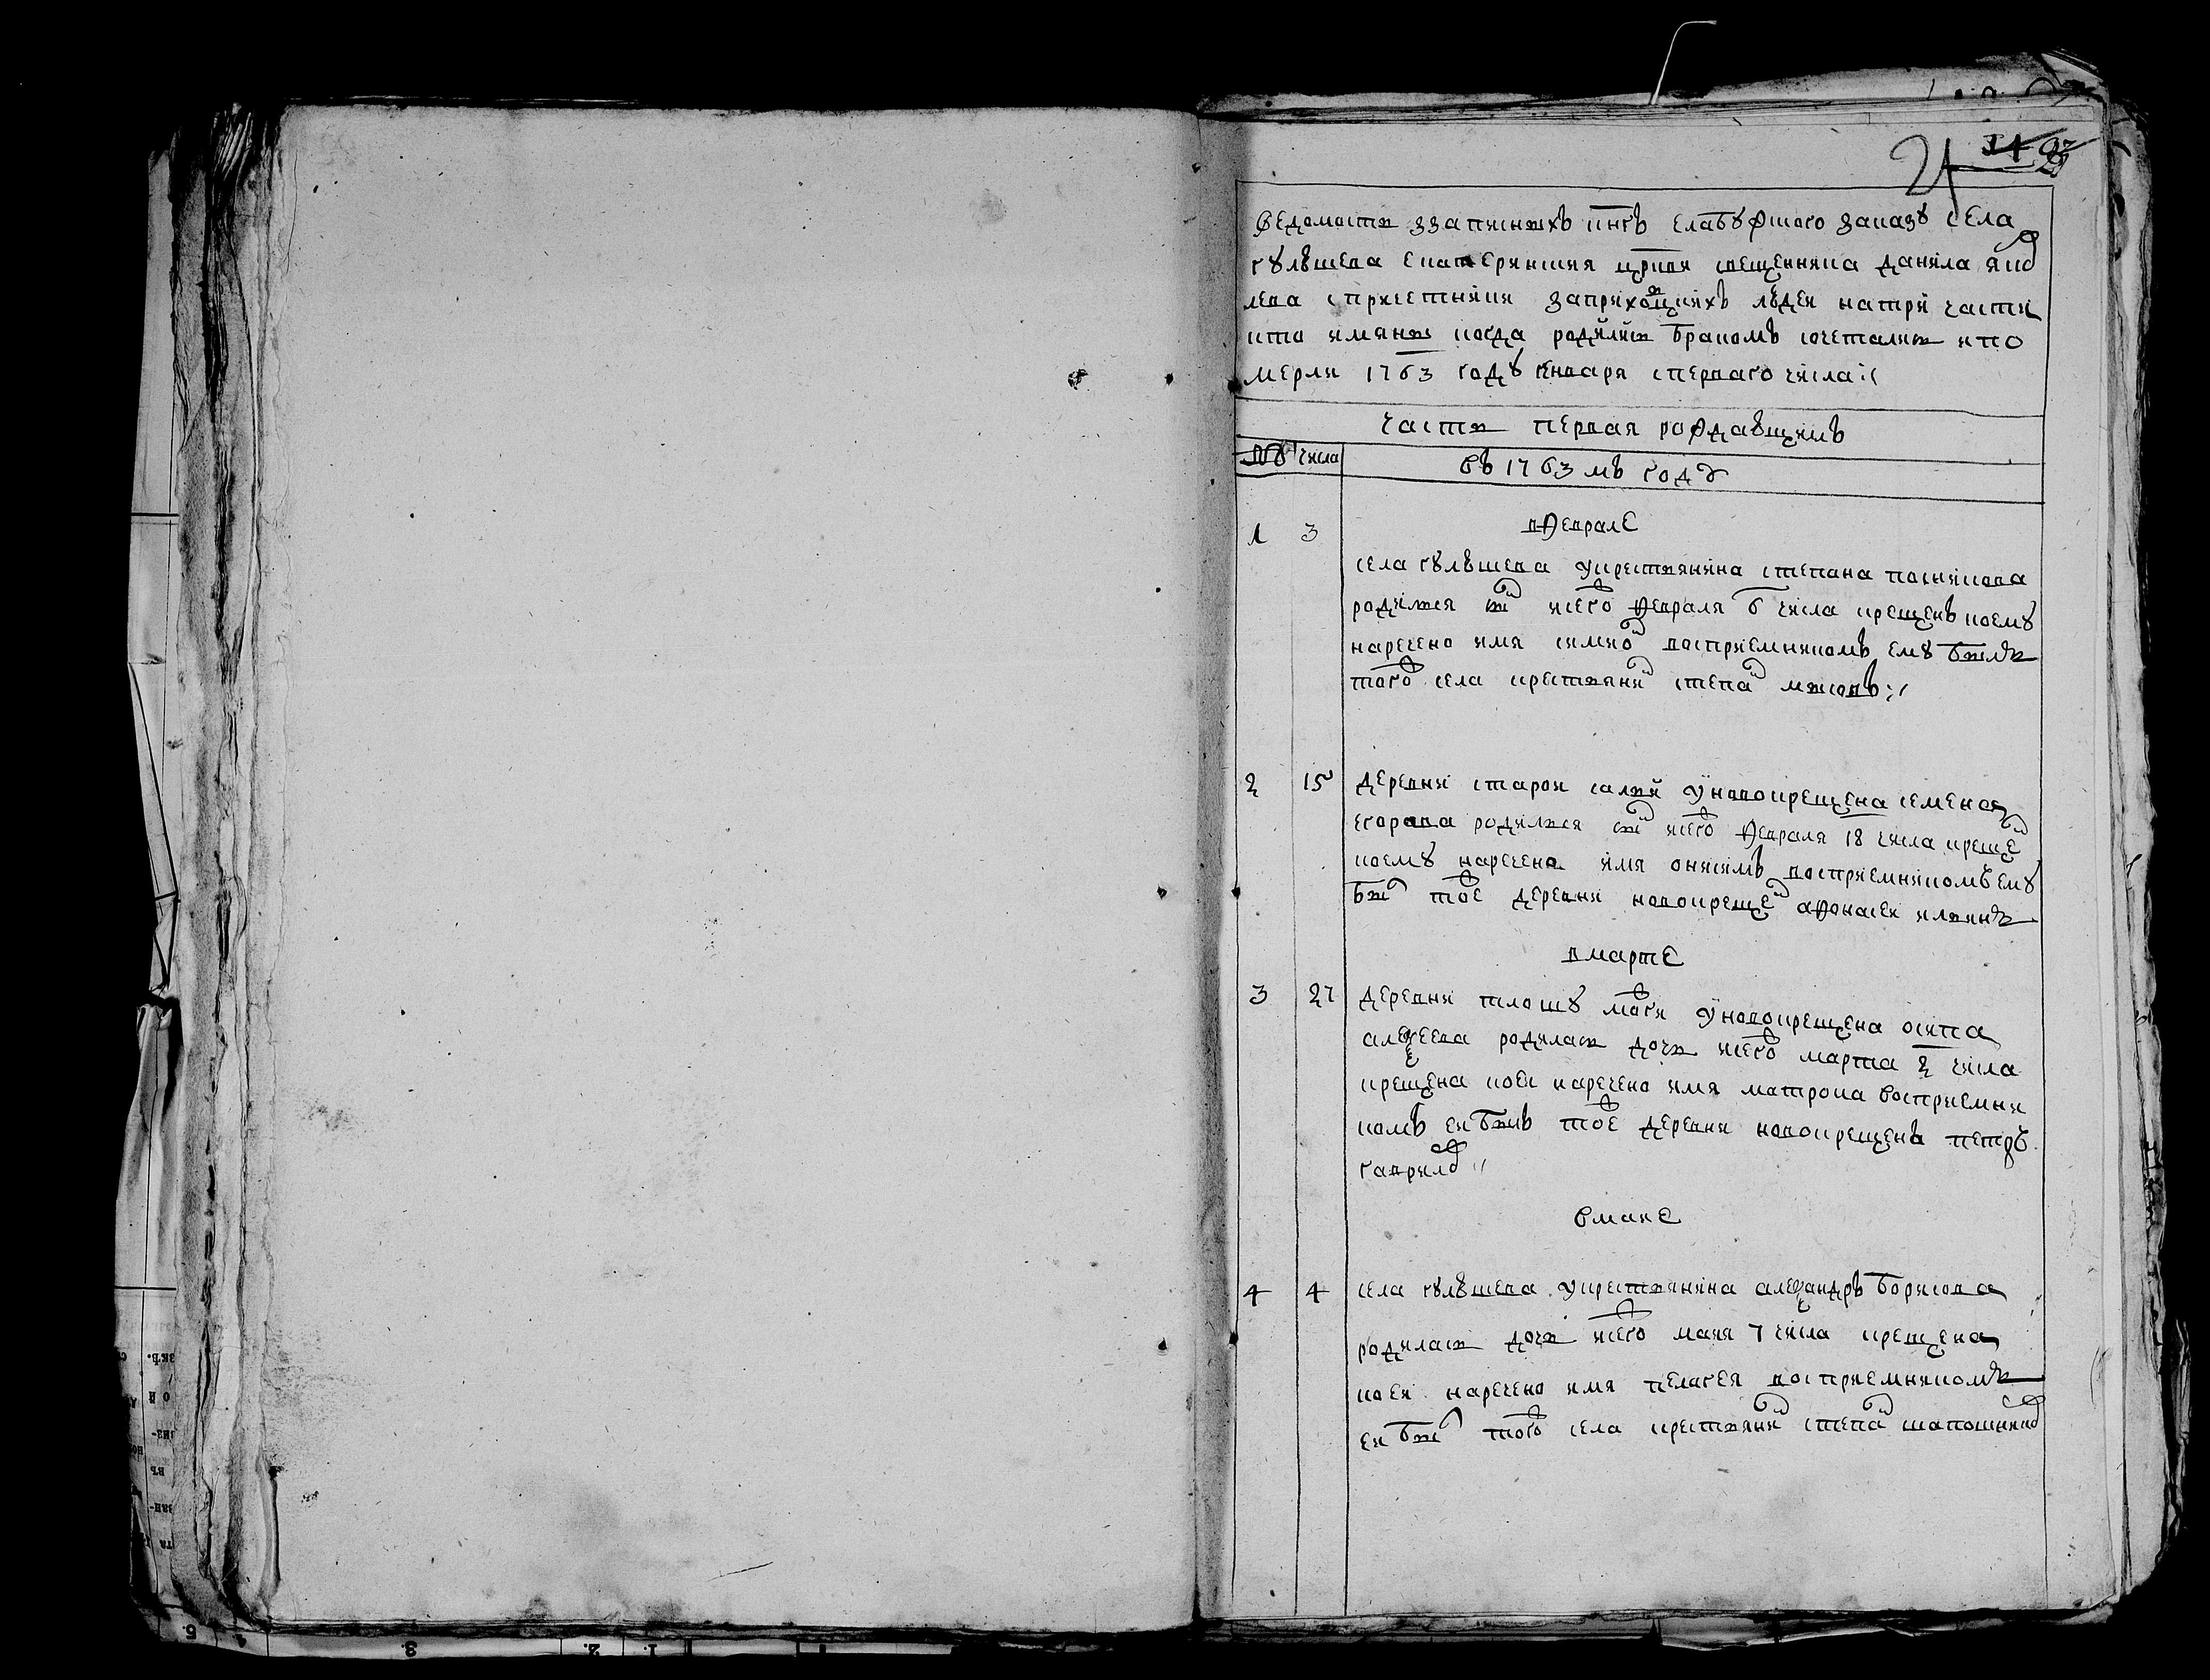 24
ведомости ззаписныхъ кнгъ елабужского заказу села
гулюшева екатерински цркви свещенника данила яко
лева спричетники заприходцкихъ людеи натри части
кто имяны когда родились бракомъ сочетались ипо
мерли 1763 году генваря спервого числа
часть первая рождающимъ
№ числа
въ 1763 мъ году
вфеврале
1 3
села гулюшева укрестьянина степана посникова
родился снъ исего февраля 6 числа крещенъ коему
наречено имя симио восприемникомъ ему былъ
того села крестьяни степа мысовъ
2 15 деревни старои салыи уновокрещена семена
егорова родился снъ исего февраля 18 числа креще
коему наречено имя онисимъ восприемникомъ ему
бы тое деревни новокреще афонасеи илынъ
вмарте
3 27 деревни уновокрещена осипа
алеѯеева родилась дочь исего марта числа
крещена коеи наречено имя матрона восприемни
комъ еи былъ тое деревни новокрещенъ петръ
гаврило
вмаие
4 4 села гулюшева укрестьянина алеѯандръ борисова
родилась дочь исего маия 7 числа крещена
коеи наречено имя пелагея восприемникомъ
еи бы того села крестьяни степа шапошнико